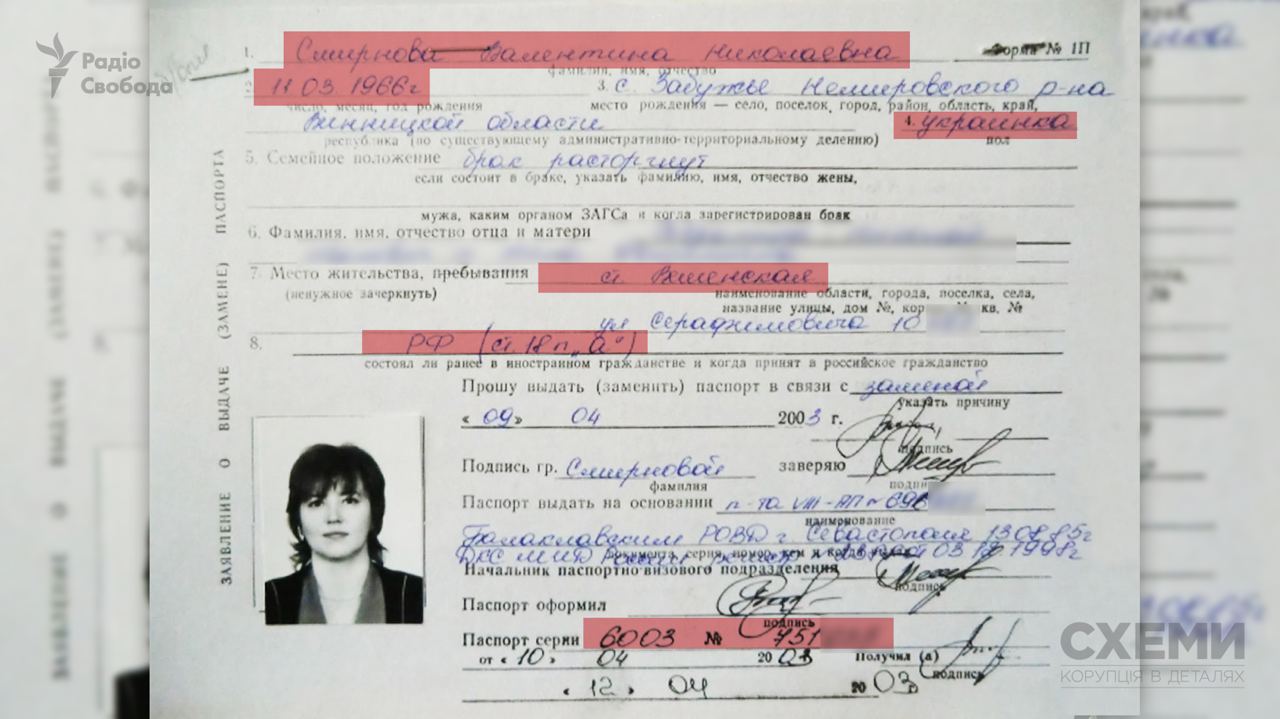 Радіо
Свобода
1. Смирнова Валентина Николаевна
Форма № 1П
фамилия, имя, отчество
11.03.1966г 3. с. Забужье Немировского р-на
число, месяц, год рождения место рождения — село, поселок, город, район, область, край,
Винницкой области 4. украинка
республика (по существующему административно-территориальному делению) пол
5. Семейное положение брак расторгнут
если состоит в браке, указать фамилию, имя, отчество жены,
мужа, каким органом ЗАГСа и когда зарегистрирован брак
6. Фамилия, имя, отчество отца и матери
7. Место жительства, пребывания ст. Вешенская
(ненужное зачеркнуть) наименование области, города, поселка, села,
название улицы, дом №, кор кв. №
ул Серафимовича 10
8. РФ (ст. 18 п „а")
состоял ли ранее в иностранном гражданстве и когда принят в российское гражданство
Прошу выдать (заменить) паспорт в связи с заменой
указать причину
« 09» 04 2003 г.
подпись
Подпись гр. Смирновой заверяю
фамилия подпи
Паспорт выдать на основании п-та VIII-АП № 696
наименование
Балаклавским РОВД г. Севастополя 13.08.85г
документа, серия, номер, кем и когда
ДКС МИД России 03 1998г
Начальник паспортно-визового подразделения
подпись
Паспорт оформил
подпись
Паспорт серии 6003 № 751
от « 10 » 04 2003 Получил (а)
подпись
« 12 » 04 2003
ЗАЯВЛЕНИЕ О ВЫДАЧЕ (ЗАМЕНЕ) ПАСПОРТА
СХЕМИ
КОРУПЦІЯ В ДЕТАЛЯХ